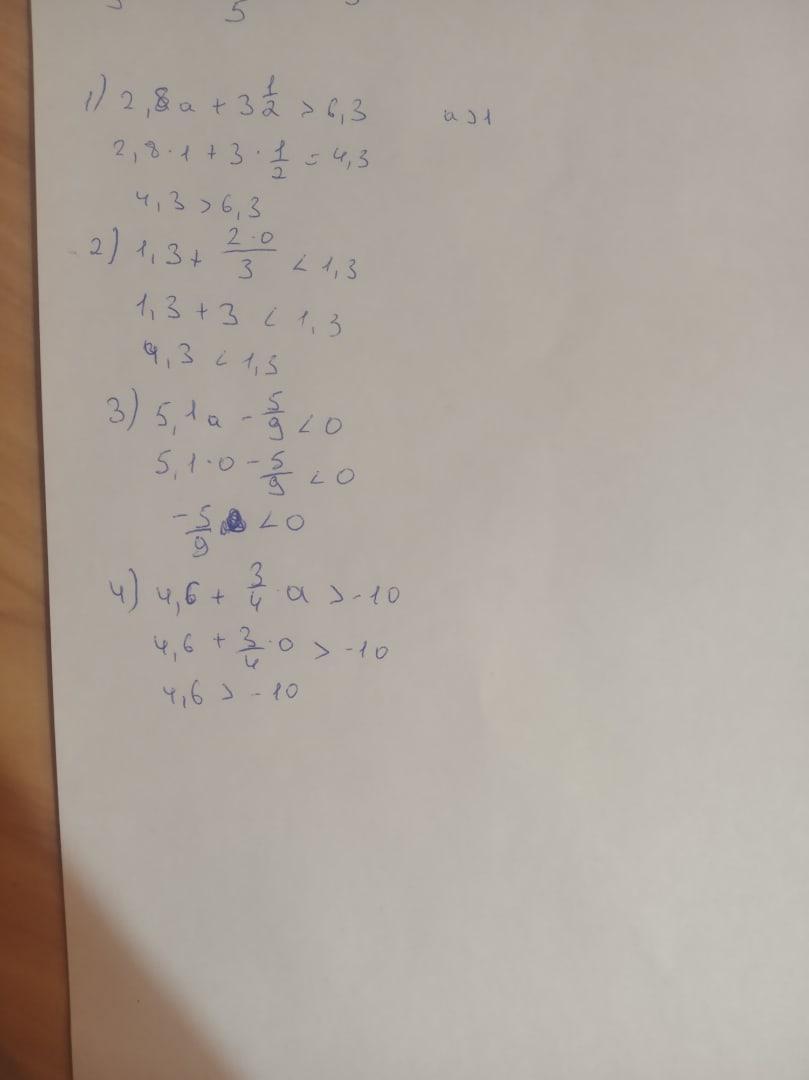 5
1) 2,8a + 3 1/2 > 6,3 a>1
2,8·1 + 3 · 1/2 = 4,3
4,3 > 6,3
2) 1,3 + 2·0/3 < 1,3
1,3 + 3 < 1,3
4,3 < 1,3
3) 5,1a - 5/9 < 0
5,1·0 - 5/9 < 0
-5/9 < 0
4) 4,6 + 3/4·a > -10
4,6 + 3/4·0 > -10
4,6 > -10